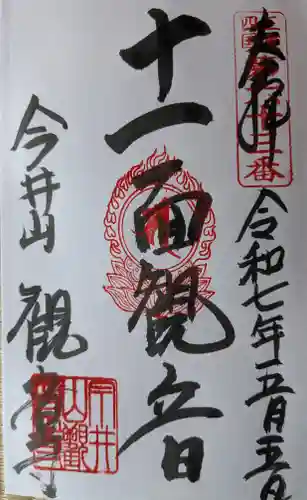 奉拝
令和七年五月五日
十一面観音
今井山 観音寺
今井
山觀
音寺